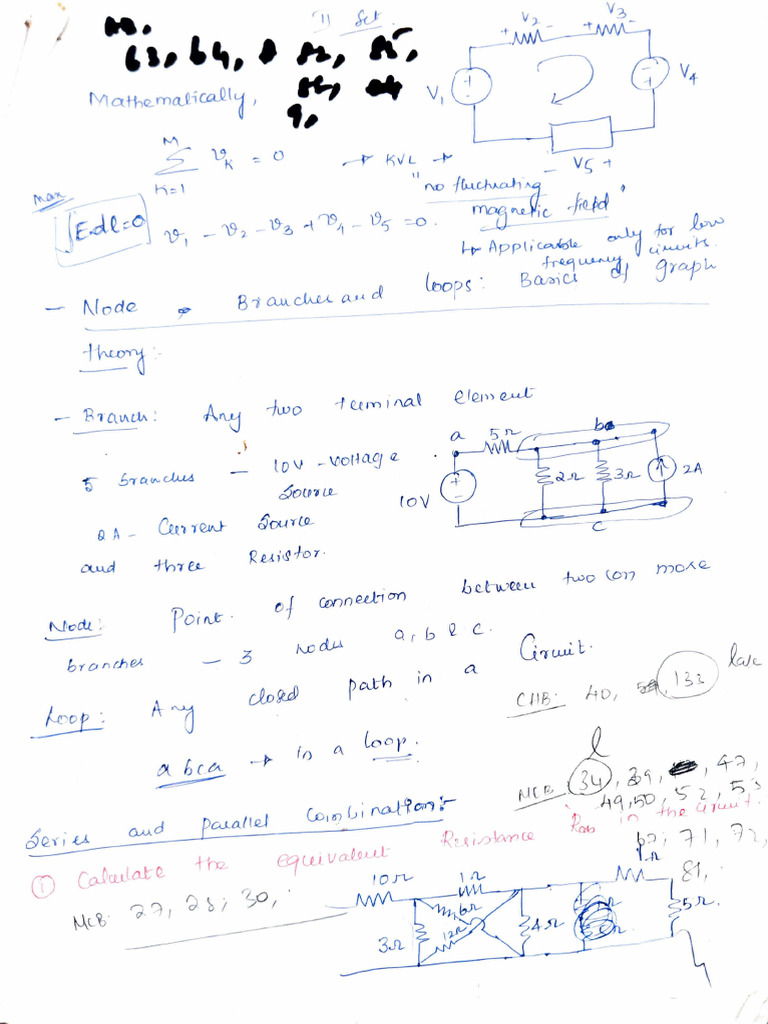 11 Set
63, 64, 82, 85,
9,
V2 V3
+ - + -
V1
V4
- V5 +
Mathematically,
M
Σ vk = 0 → KVL →
K=1
"no fluctuating
magnetic field"
↳ Applicable only for low
frequency circuits.
Max
∫E.dl=0
v1 - v2 - v3 + v4 - v5 = 0.
- Node Branches and loops: Basics of graph
theory:-
- Branch: Any two terminal element
5 branches — 10V - Voltage
Source
2A - Current Source
and three Resistor.
a 5Ω b
10V 2Ω 3Ω 2A
c
Node: Point of connection between two (or) more
branches — 3 nodes a, b & c.
Loop: Any closed path in a Circuit.
abca → in a loop.
CHB: 40, 133
MCB: 34, 39, 47,
49, 50 52, 53
71, 72,
81,
Series and parallel Combination:-
① Calculate the equivalent Resistance Rab in the circuit.
MCB: 27, 28, 30,
10Ω 1Ω 1Ω
6Ω
12Ω
3Ω 4Ω 5Ω